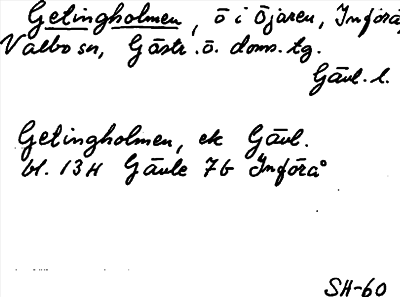 Getingholmen, ö i Öjaren, Införå,
Valbo sn, Gästr. ö. doms. tg.
Gävl. l.
Getingholmen, ek Gävl.
bl. 13H Gävle 7b Införå
SH-60